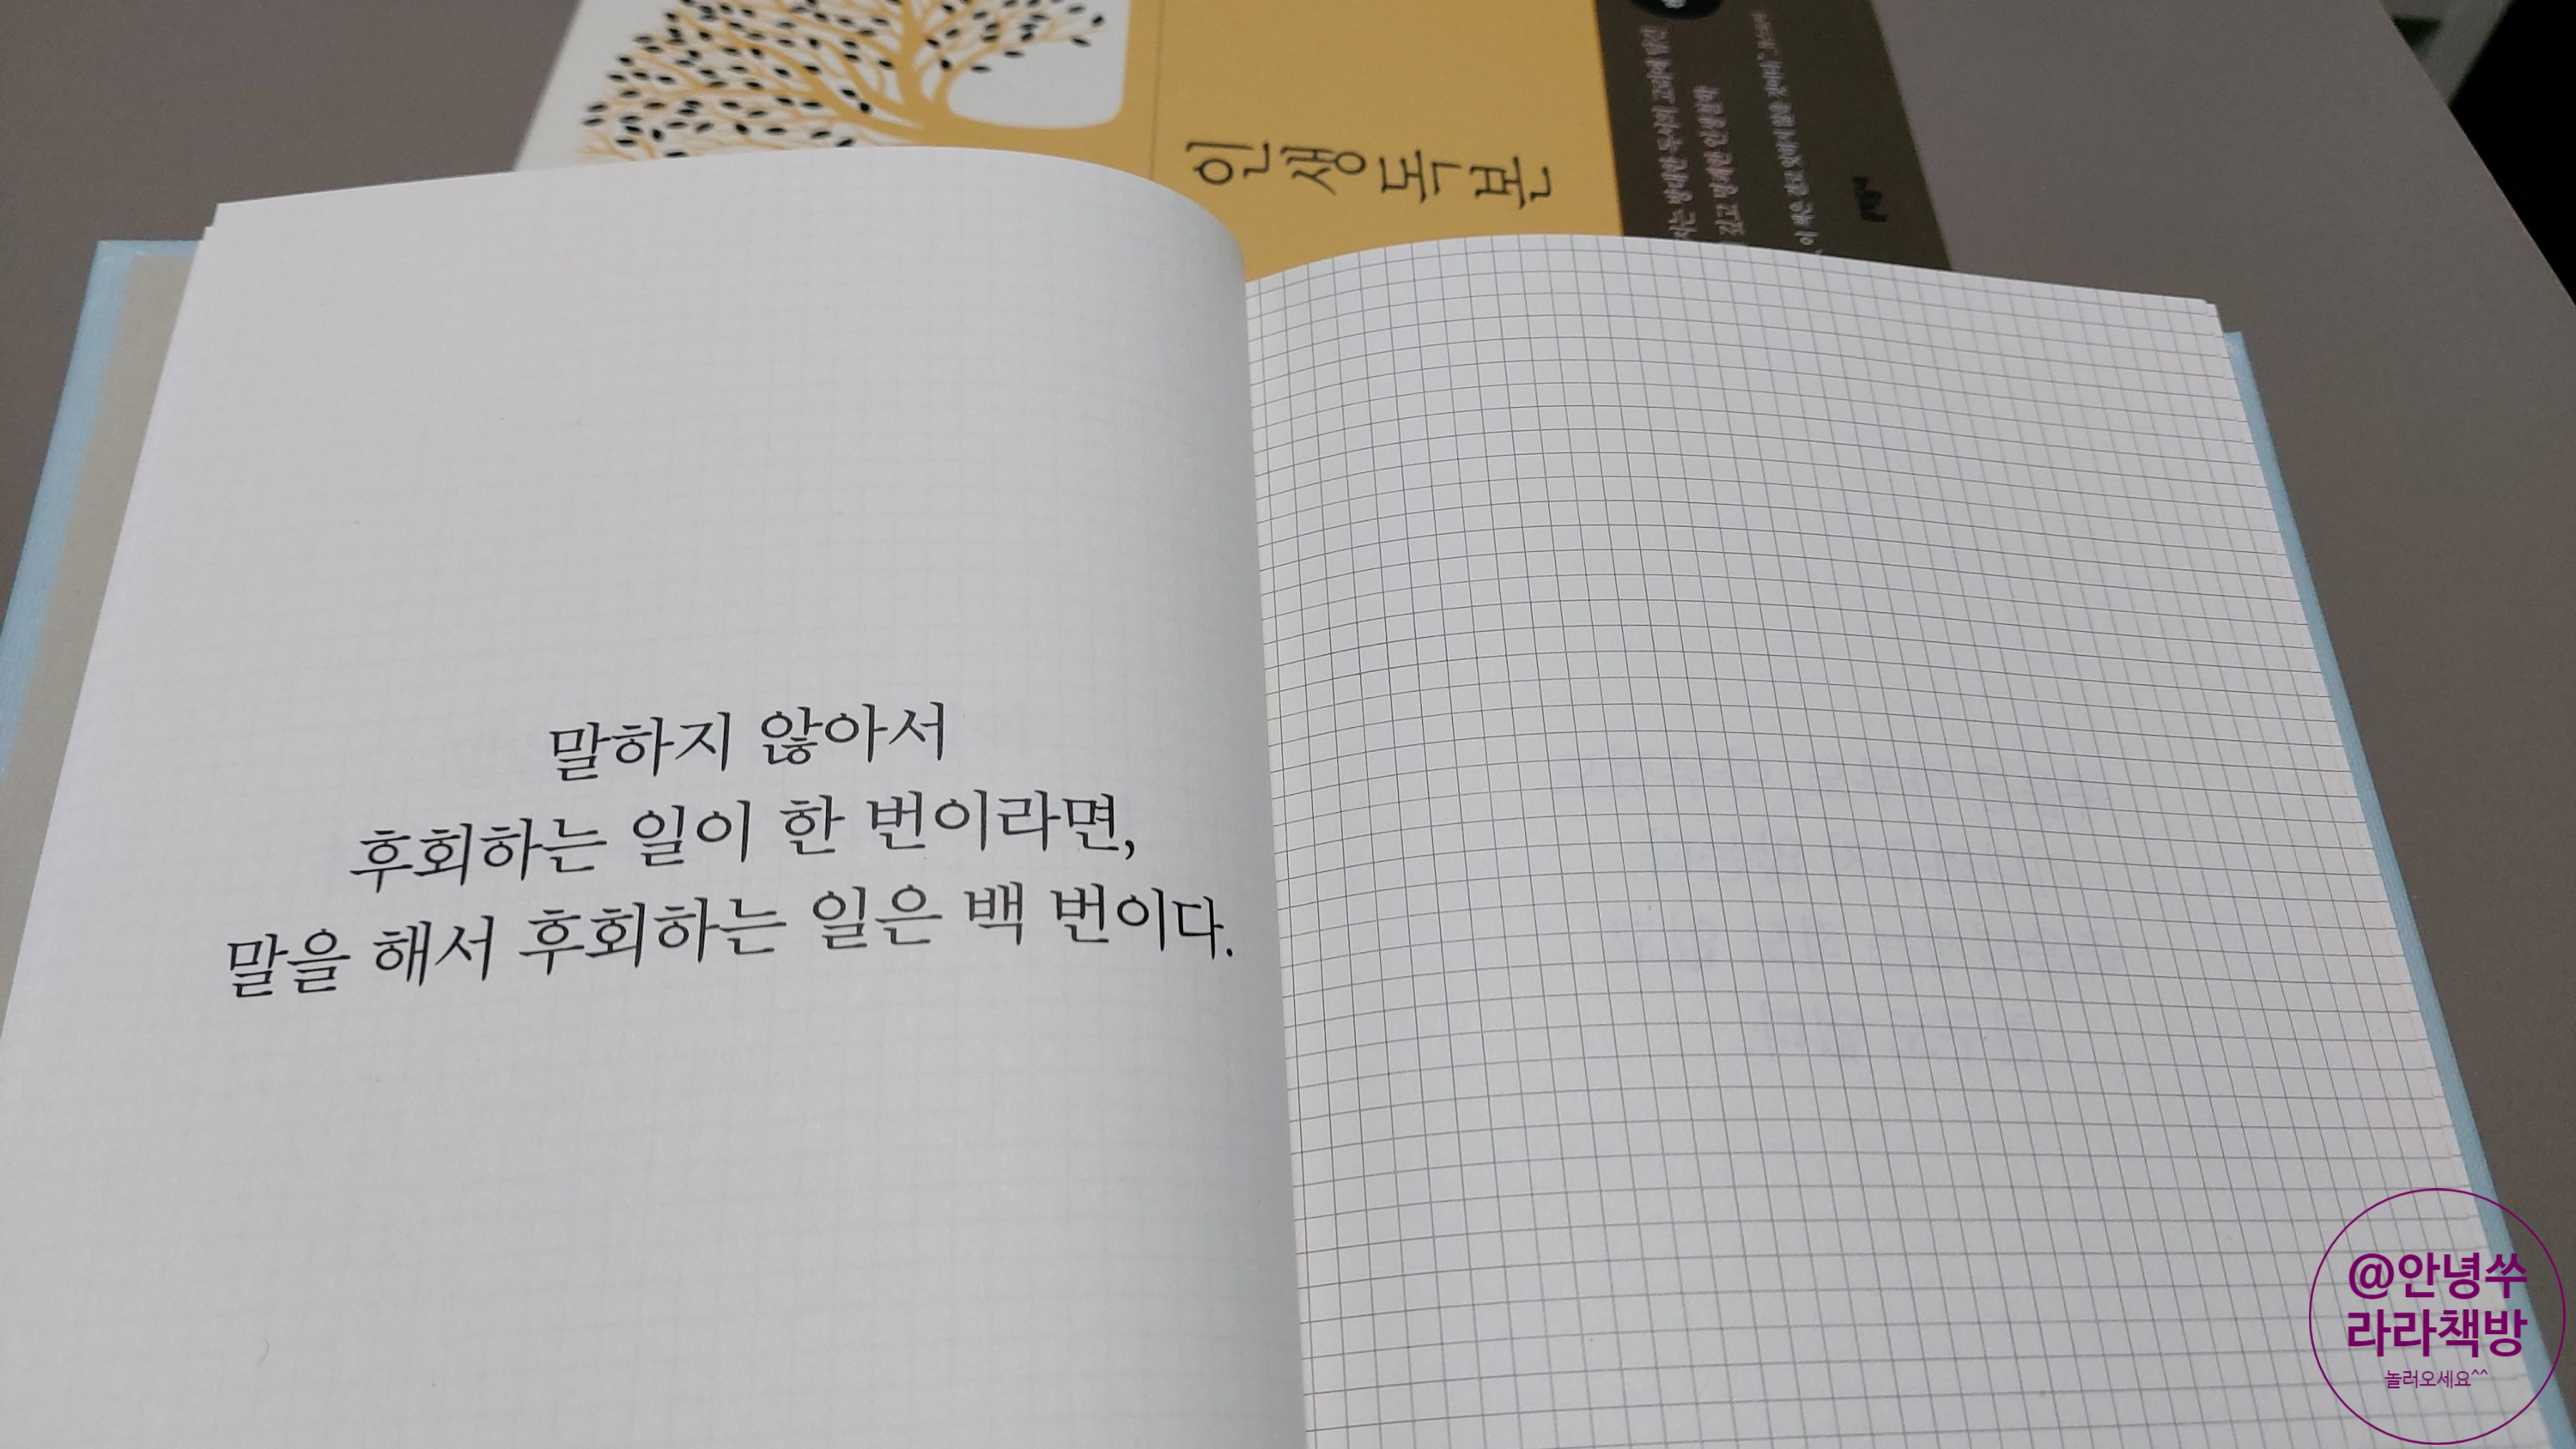 인생독본
말하지 않아서
후회하는 일이 한 번이라면,
말을 해서 후회하는 일은 백 번이다.
@안녕쑤
라라책방
놀러오세요^^